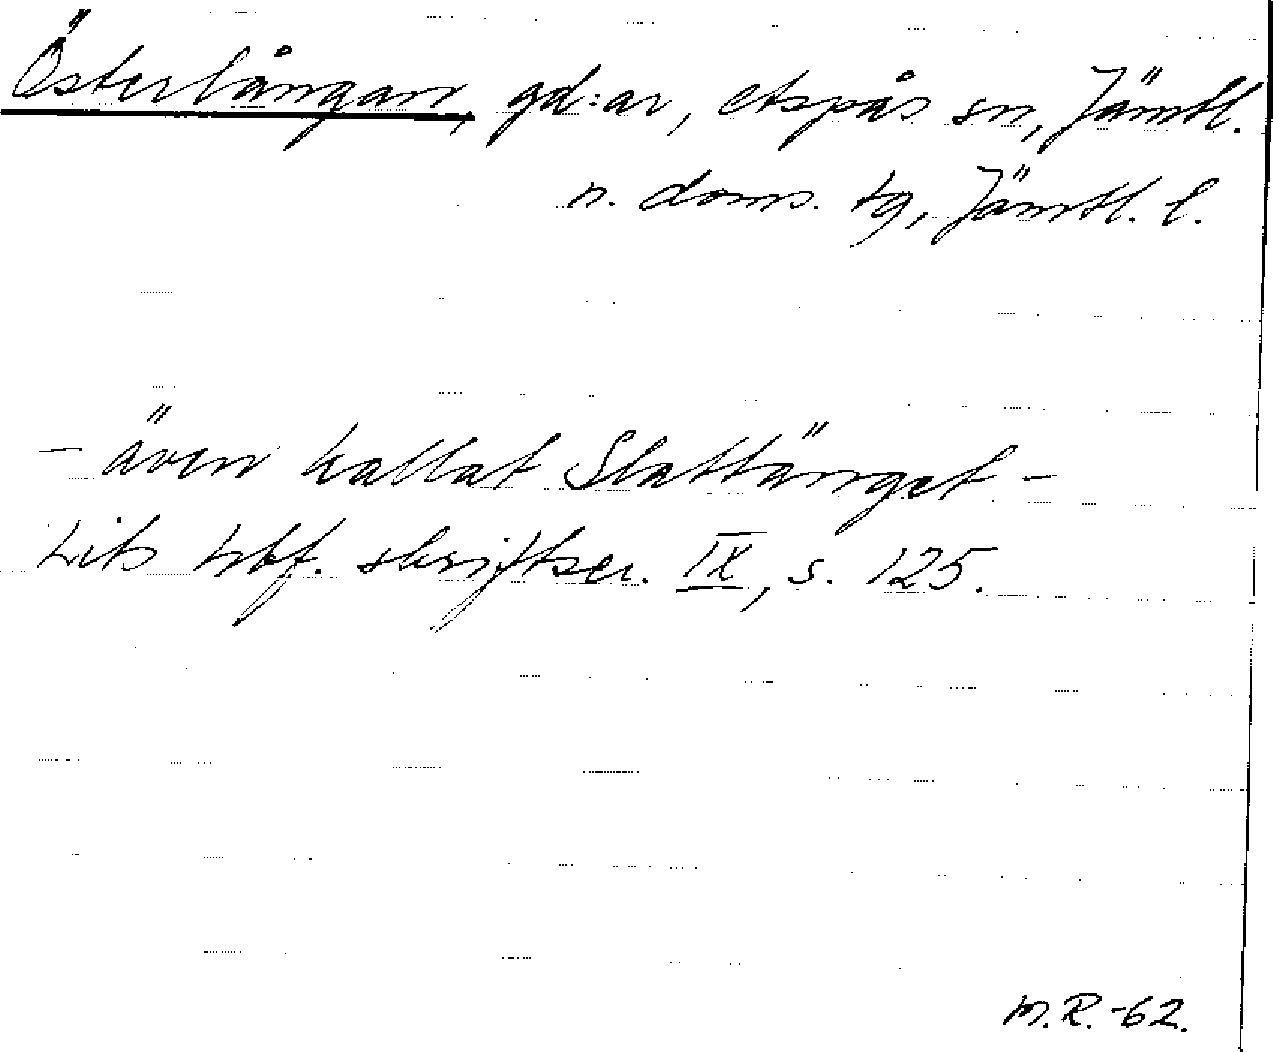 Österlångan, gd:ar, Aspås sn, Jämtl.
n. doms. tg, Jämtl. l.
- även kallat Slattänget -
Lits hbf. skriftser. IX, s. 125.
M.R.-62.